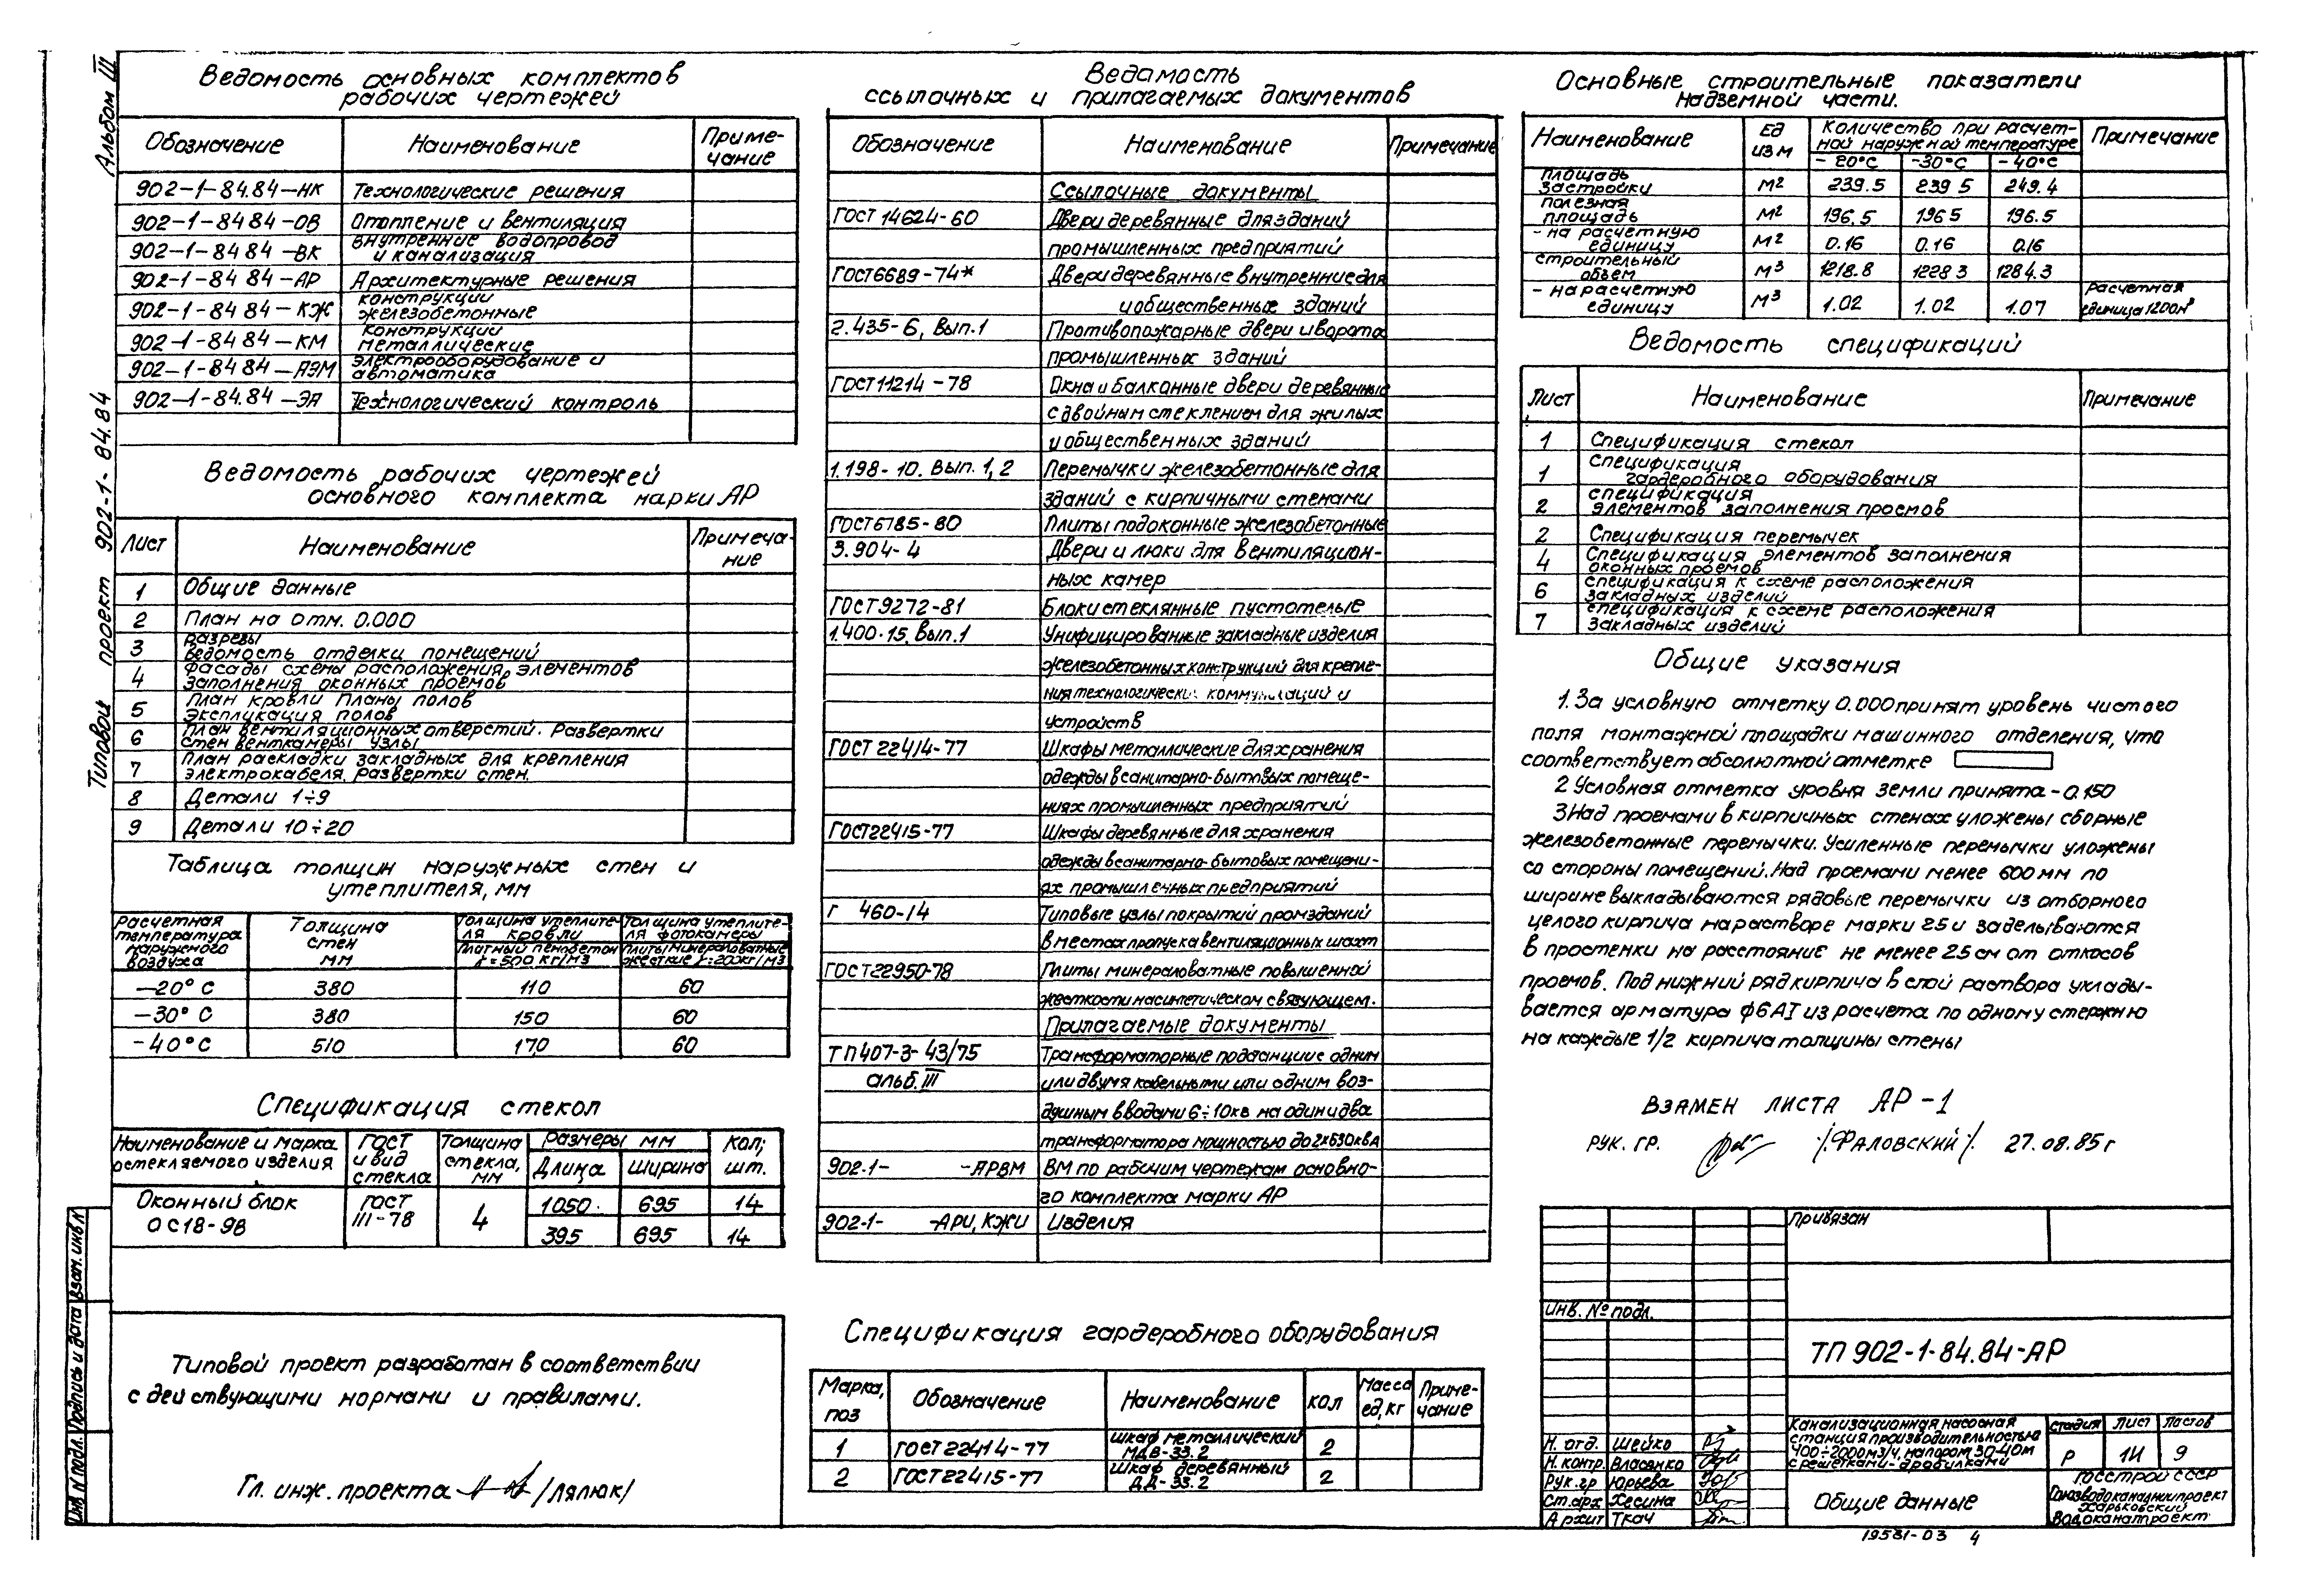 Альбом III
Типовой проект 902-1-84.84
Ведомость основных комплектов
рабочих чертежей
Обозначение Наименование Приме-
чание
902-1-84.84-НК Технологические решения
902-1-84 84-ОВ Отопление и вентиляция
902-1-84 84-ВК внутренние водопровод
и канализация
902-1-84 84-АР Архитектурные решения
902-1-84 84-КЖ конструкции
железобетонные
902-1-84 84-КМ конструкции
металлические
902-1-84 84-АЭМ электрооборудование и
автоматика
902-1-84.84-ЭА Технологический контроль
Ведомость рабочих чертежей
основного комплекта марки АР
Лист Наименование Примеча-
ние
1 Общие данные
2 План на отм. 0.000
3 разрезы
Ведомость отделки помещений
4 Фасады схемы расположения элементов
заполнения оконных проемов
5 План кровли Планы полов
Экспликация полов
6 План вентиляционных отверстий. Развертки
стен венткамеры узлы
7 План раскладки закладных для крепления
электрокабеля. развертки стен.
8 Детали 1÷9
9 Детали 10÷20
Таблица толщин наружных стен и
утеплителя, мм
Расчетная
температура
наружного
воздуха
Толщина
стен
мм
Толщина утеплите-
ля кровли
Плитный пенобетон
γ=500 кг/м3
Толщина утеплите-
ля фотокамеры
Плиты минераловатные
жесткие γ=200кг/м3
-20°С 380 110 60
-30°С 380 150 60
-40°С 510 170 60
Спецификация стекол
Наименование и марка
остекляемого изделия
ГОСТ
и вид
стекла
Толщина
стекла,
мм
Размеры мм
Длина Ширина
Кол;
шт.
Оконный блок
ОС18-9В
ГОСТ
111-78
4
1050 695 14
395 695 14
Типовой проект разработан в соответствии
с действующими нормами и правилами.
Гл. инж. проекта /Лялюк/
Инв. N подл. Подпись и дата Взам. инв N
Ведомость
ссылочных и прилагаемых документов
Обозначение Наименование Примечание
Ссылочные документы
ГОСТ 14624-60 Двери деревянные для зданий
промышленных предприятий
ГОСТ6689-74* Двери деревянные внутренние для
и общественных зданий
2.435-6, Вып.1 Противопожарные двери и ворота
промышленных зданий
ГОСТ11214-78 Окна и балконные двери деревянные
с двойным стеклением для жилых
и общественных зданий
1.198-10. Вып. 1, 2 Перемычки железобетонные для
зданий с кирпичными стенами
ГОСТ6785-80 Плиты подоконные железобетонные
3.904-4 Двери и люки для вентиляцион-
ных камер
ГОСТ9272-81 Блоки стеклянные пустотелые
1.400-15. Вып.1 Унифицированные закладные изделия
железобетонных конструкций для крепле-
ния технологических коммуникаций и
устройств
ГОСТ 22414-77 Шкафы металлические для хранения
одежды в санитарно-бытовых помеще-
ниях промышленных предприятий
ГОСТ22415-77 Шкафы деревянные для хранения
одежды в санитарно-бытовых помещени-
ях промышленных предприятий
Г 460-14 Типовые узлы покрытий промзданий
в местах пропуска вентиляционных шахт
ГОСТ22950-78 Плиты минераловатные повышенной
жесткости на синтетическом связующем.
Прилагаемые документы
ТП407-3-43/75 Трансформаторные подстанции с одним
альб. III или двумя кабельными или одним воз-
душным вводами 6÷10кв на один и два
трансформатора мощностью до 2×630кВА
902-1- -АРВМ ВМ по рабочим чертежам основно-
го комплекта марки АР
902-1- -АРИ, КЖИ Изделия
Спецификация гардеробного оборудования
Марка,
поз
Обозначение Наименование кол Масса
ед, кг
Приме-
чание
1 ГОСТ22414-77 шкаф металлический
МДВ-33.2 2
2 ГОСТ22415-77 Шкаф деревянный
ДД-33.2 2
Основные строительные показатели
надземной части.
Наименование Ед
изм
Количество при расчет-
ной наружной температуре
-20°С -30°С -40°С
Примечание
площадь
застройки м2 239.5 239 5 249.4
полезная
площадь м2 196.5 196 5 196.5
-на расчетную
единицу м2 0.16 0.16 0.16
строительный
объем м3 1218.8 1228 3 1284.3
-на расчетную
единицу м3 1.02 1.02 1.07 расчетная
единица 1200м³
Ведомость спецификаций
Лист Наименование Примечание
1 Спецификация стекол
1 Спецификация
гардеробного оборудования
2 спецификация
элементов заполнения проемов
2 Спецификация перемычек
4 Спецификация элементов заполнения
оконных проемов
6 спецификация к схеме расположения
закладных изделий
7 спецификация к схеме расположения
закладных изделий
Общие указания
1. За условную отметку 0.000 принят уровень чистого
пола монтажной площадки машинного отделения, что
соответствует абсолютной отметке
2 Условная отметка уровня земли принята -0.150
3 Над проемами в кирпичных стенах уложены сборные
железобетонные перемычки. Усиленные перемычки уложены
со стороны помещений. Над проемами менее 600 мм по
ширине выкладываются рядовые перемычки из отборного
целого кирпича на растворе марки 25 и заделываются
в простенки на расстояние не менее 25 см от откосов
проемов. Под нижний ряд кирпича в слой раствора уклады-
вается арматура ф6АI из расчета по одному стержню
на каждые 1/2 кирпича толщины стены
ВЗАМЕН ЛИСТА АР-1
РУК. ГР. /ФАЛОВСКИЙ/ 27.08.85г
Привязан
Инв. № подл.
ТП 902-1-84.84-АР
Н. отд. Шейко
Н. контр. Власенко
Рук. гр Юрьева
Ст. арх Хесина
Архит Ткач
Канализационная насосная
станция производительностью
400÷2000м3/ч, напором 30-40м
с решетками-дробилками
стадия Лист Листов
Р 1И 9
Общие данные
Госстрой СССР
Союзводоканалниипроект
Харьковский
Водоканалпроект
19581-03 4